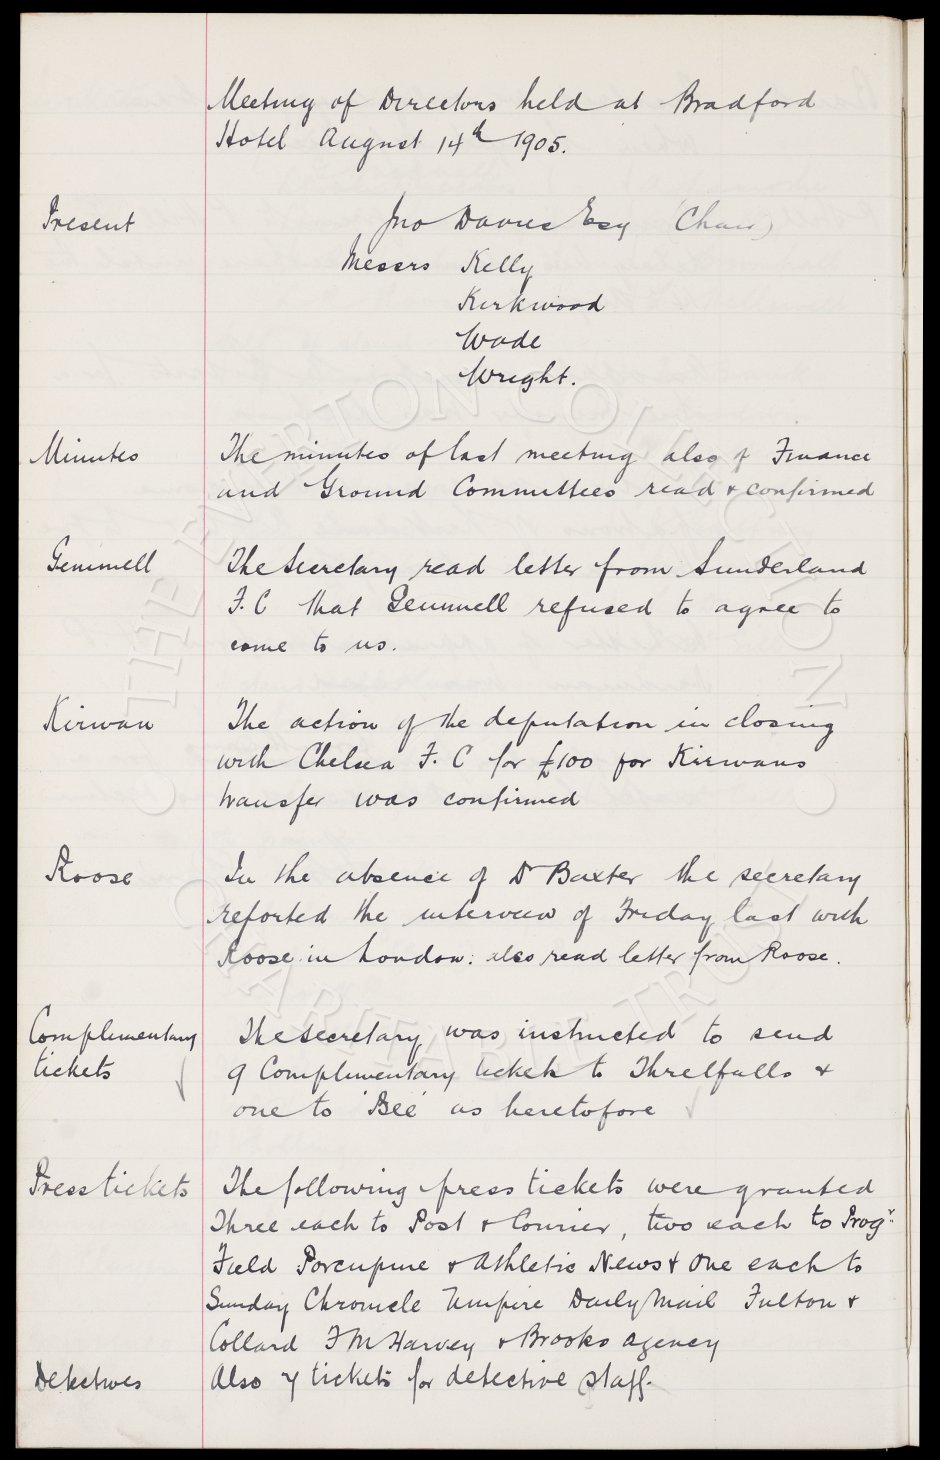 Meeting of Directors held at Bradford
Hotel August 14th 1905.
Present
Jno Davies Esq (Chair)
Messrs Kelly
Kirkwood
Wade
Wright.
Minutes
The minutes of last meeting also of Finance
and Ground Committees read & confirmed
Gemmell
The Secretary read letter from Sunderland
F. C that Gemmell refused to agree to
come to us.
Kirwan
The action of the deputation in closing
with Chelsea F. C for £100 for Kirwans
transfer was confirmed
Roose
In the absence of Dr Baxter the secretary
reported the interview of Friday last with
Roose in London. also read letter from Roose.
Complimentary
tickets
The Secretary was instructed to send
9 Complimentary tickets to Threlfalls &
one to 'Bee' as heretofore
Press tickets
The following press tickets were granted
Three each to Post & Courier, two each to Progr.
Field Porcupine & Athletic News & One each to
Sunday Chronicle Umpire Daily Mail Fulton &
Collard F M Harvey & Brooks agency
Detectives
Also 7 tickets for detective staff.
© THE EVERTON COLLECTION
CHARITABLE TRUST